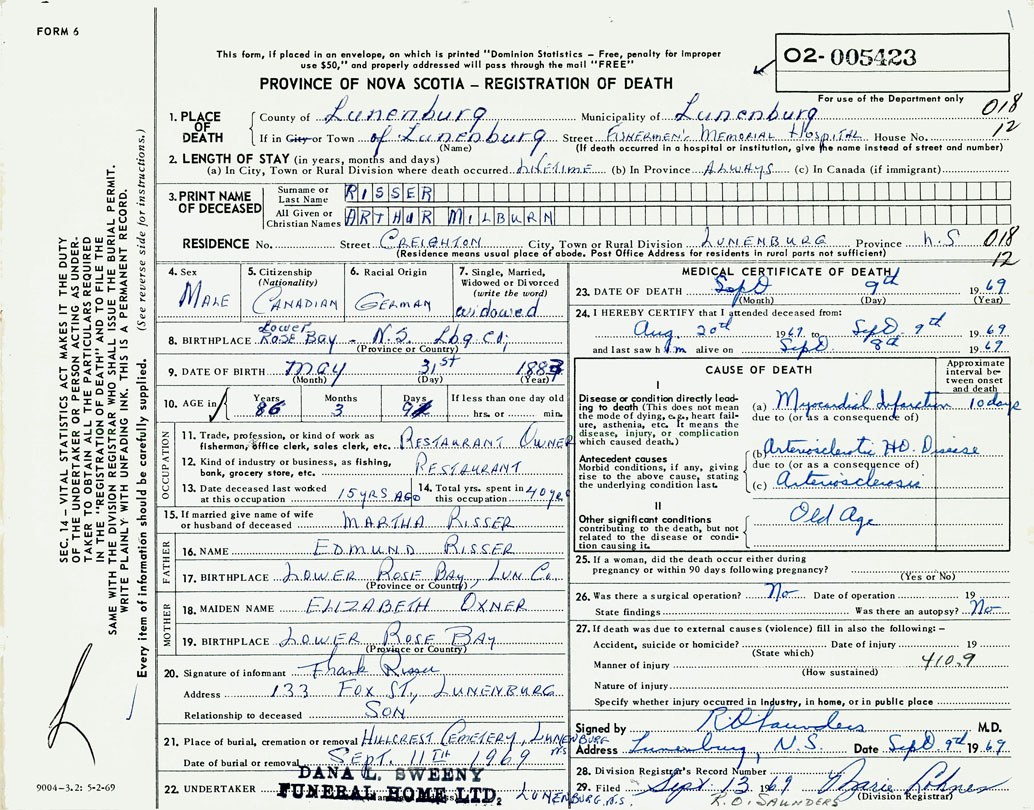 FORM 6
This form, if placed in an envelope, on which is printed "Dominion Statistics – Free, penalty for improper
use $50," and properly addressed will pass through the mail "FREE"
O2-005423
PROVINCE OF NOVA SCOTIA – REGISTRATION OF DEATH
For use of the Department only
1. PLACE OF DEATH County of Lunenburg Municipality of Lunenburg 018
If in City or Town of Lunenburg Street FISHERMEN'S MEMORIAL HOSPITAL House No. 12
(Name) (If death occurred in a hospital or institution, give the name instead of street and number)
2. LENGTH OF STAY (in years, months and days)
(a) In City, Town or Rural Division where death occurred LIFETIME (b) In Province ALWAYS (c) In Canada (if immigrant)
3. PRINT NAME OF DECEASED
Surname or Last Name RISSER
All Given or Christian Names ARTHUR MILBURN
RESIDENCE No. Street CREIGHTON City, Town or Rural Division LUNENBURG Province N.S 018
(Residence means usual place of abode. Post Office Address for residents in rural parts not sufficient) 12
4. Sex MALE
5. Citizenship (Nationality) CANADIAN
6. Racial Origin GERMAN
7. Single, Married, Widowed or Divorced (write the word) widowed
8. BIRTHPLACE Lower ROSE BAY - N.S. Lbg Co;
(Province or Country)
9. DATE OF BIRTH MAY 31st 1883
(Month) (Day) (Year)
10. AGE in Years 86 Months 3 Days 9 If less than one day old hrs. or min.
OCCUPATION
11. Trade, profession, or kind of work as fisherman, office clerk, sales clerk, etc. RESTAURANT OWNER
12. Kind of industry or business, as fishing, bank, grocery store, etc. RESTAURANT
13. Date deceased last worked at this occupation 15 YRS AGO
14. Total yrs. spent in this occupation 40 yrs
15. If married give name of wife or husband of deceased MARTHA RISSER
FATHER
16. NAME EDMUND RISSER
17. BIRTHPLACE LOWER ROSE BAY, LUN Co.
(Province or Country)
MOTHER
18. MAIDEN NAME ELIZABETH OXNER
19. BIRTHPLACE LOWER ROSE BAY
(Province or Country)
20. Signature of informant Risser
Address 133 FOX ST., LUNENBURG
Relationship to deceased SON
21. Place of burial, cremation or removal HILLCREST CEMETERY, LUNENBURG N.S
Date of burial or removal SEPT. 11TH 1969
22. UNDERTAKER DANA L. SWEENY
FUNERAL HOME LTD., LUNENBURG, N.S.
MEDICAL CERTIFICATE OF DEATH
23. DATE OF DEATH Sept 9th 1969
(Month) (Day) (Year)
24. I HEREBY CERTIFY that I attended deceased from:
Aug. 20th 1969 to Sept. 9th 1969
and last saw him alive on Sept 8th 1969
CAUSE OF DEATH
Approximate interval between onset and death
I
Disease or condition directly leading to death (This does not mean the mode of dying, e.g., heart failure, asthenia, etc. It means the disease, injury, or complication which caused death.)
(a) Myocardial Infarction 10 days
due to (or as a consequence of)
Antecedent causes
Morbid conditions, if any, giving rise to the above cause, stating the underlying condition last.
(b) Arteriosclerotic HD. Disease
due to (or as a consequence of)
(c) Arteriosclerosis
II
Other significant conditions contributing to the death, but not related to the disease or condition causing it.
Old Age
25. If a woman, did the death occur either during pregnancy or within 90 days following pregnancy?
(Yes or No)
26. Was there a surgical operation? No Date of operation 19
State findings Was there an autopsy? No
27. If death was due to external causes (violence) fill in also the following: –
Accident, suicide or homicide? Date of injury 19
(State which)
Manner of injury 410.9
(How sustained)
Nature of injury
Specify whether injury occurred in industry, in home, or in public place
Signed by R.O Saunders M.D.
Address Lunenburg, N.S. Date Sept 9th 1969
28. Division Registrar's Record Number
29. Filed Sept 13 1969 Marie
R.O. SAUNDERS (Division Registrar)
SEC. 14 – VITAL STATISTICS ACT MAKES IT THE DUTY
OF THE UNDERTAKER OR PERSON ACTING AS UNDER-
TAKER TO OBTAIN ALL THE PARTICULARS REQUIRED
IN THE "REGISTRATION OF DEATH" AND TO FILE THE
SAME WITH THE DIVISION REGISTRAR WHO SHALL ISSUE THE BURIAL PERMIT.
WRITE PLAINLY WITH UNFADING INK. THIS IS A PERMANENT RECORD.
Every item of information should be carefully supplied. (See reverse side for instructions.)
9004–3.2: 5-2-69